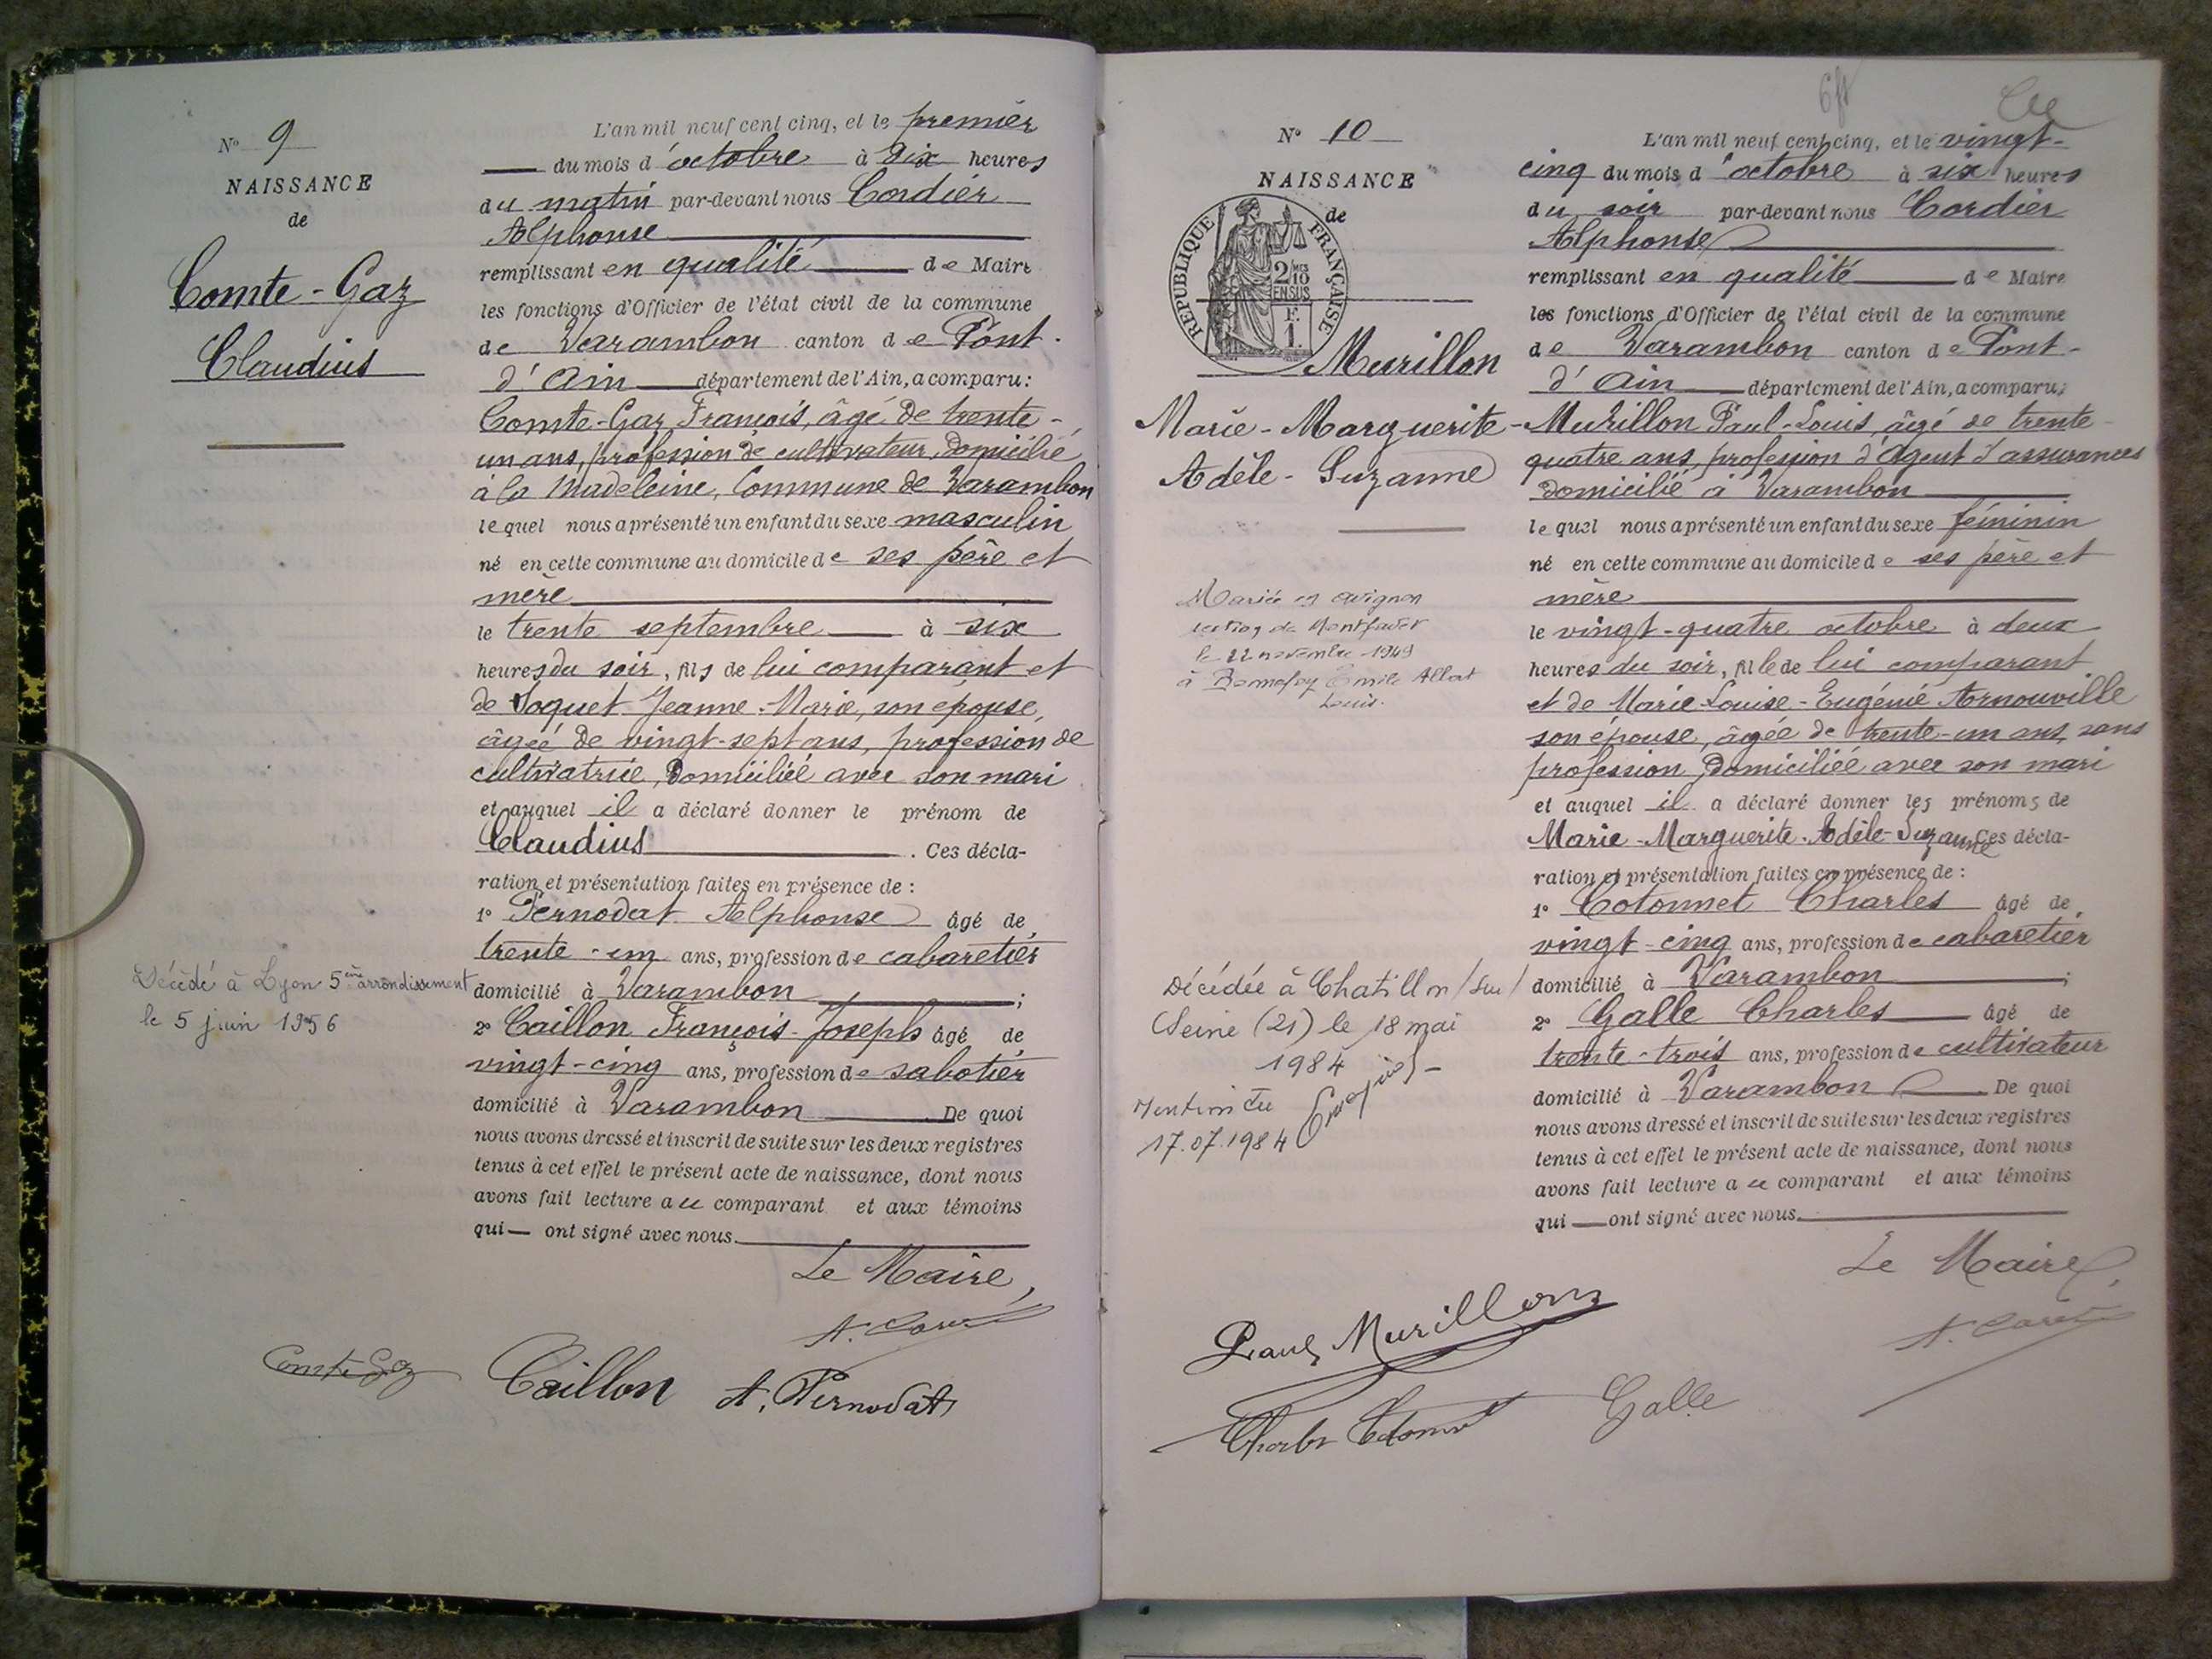 N° 9
NAISSANCE
de
Comte-Gaz
Claudius
L'an mil neuf cent cinq, et le premier
du mois d'octobre à dix heures
du matin par-devant nous Cordier
Alphonse
remplissant en qualité de Maire
les fonctions d'Officier de l'état civil de la commune
de Varambon canton de Pont-
d'Ain département de l'Ain, a comparu:
Comte-Gaz François, âgé de trente-
un ans, profession de cultivateur, domicilié
à la Madeleine, Commune de Varambon
lequel nous a présenté un enfant du sexe masculin
né en cette commune au domicile de ses père et
mère
le trente septembre à six
heures du soir, fils de lui comparant et
de Joguet Jeanne-Marie, son épouse,
âgée de vingt-sept ans, profession de
cultivatrice, domiciliée avec son mari
et auquel il a déclaré donner le prénom de
Claudius. Ces décla-
ration et présentation faites en présence de :
1° Pernodat Alphonse âgé de
trente-un ans, profession de cabaretier
domicilié à Varambon ;
2° Caillon François-Joseph âgé de
vingt-cinq ans, profession de sabotier
domicilié à Varambon De quoi
nous avons dressé et inscrit de suite sur les deux registres
tenus à cet effet le présent acte de naissance, dont nous
avons fait lecture au comparant et aux témoins
qui — ont signé avec nous.
Le Maire,
Comte Gaz Caillon A. Pernodat
Décédé à Lyon 5ème arrondissement
le 5 juin 1956
N° 10
NAISSANCE
de
REPUBLIQUE FRANÇAISE
2/10 EN SUS
F. 1.
Murillon
Marie-Marguerite-
Adèle-Suzanne
L'an mil neuf cent cinq, et le vingt-
cinq du mois d'octobre à six heures
du soir par-devant nous Cordier
Alphonse
remplissant en qualité de Maire
les fonctions d'Officier de l'état civil de la commune
de Varambon canton de Pont-
d'Ain département de l'Ain, a comparu:
Murillon Paul-Louis, âgé de trente-
quatre ans, profession d'Agent d'assurances
domicilié à Varambon
lequel nous a présenté un enfant du sexe féminin
né en cette commune au domicile de ses père et
mère
le vingt-quatre octobre à deux
heures du soir, fille de lui comparant
et de Marie-Louise-Eugénie Arnouville
son épouse, âgée de trente-un ans, sans
profession, domiciliée avec son mari
et auquel il a déclaré donner les prénoms de
Marie-Marguerite-Adèle-Suzanne Ces décla-
ration et présentation faites en présence de :
1° Cotonnet Charles âgé de
vingt-cinq ans, profession de cabaretier
domicilié à Varambon ;
2° Galle Charles âgé de
trente-trois ans, profession de cultivateur
domicilié à Varambon De quoi
nous avons dressé et inscrit de suite sur les deux registres
tenus à cet effet le présent acte de naissance, dont nous
avons fait lecture au comparant et aux témoins
qui — ont signé avec nous.
Le Maire,
Paul Murillon
Charles Cotonnet Galle
Mariée en Avignon
section de Montfavet
le 22 novembre 1949
à Émile Albert
Louis.
Décédée à Chatillon/sur/
Seine (21) le 18 mai
1984
Mention du
17.07.1984